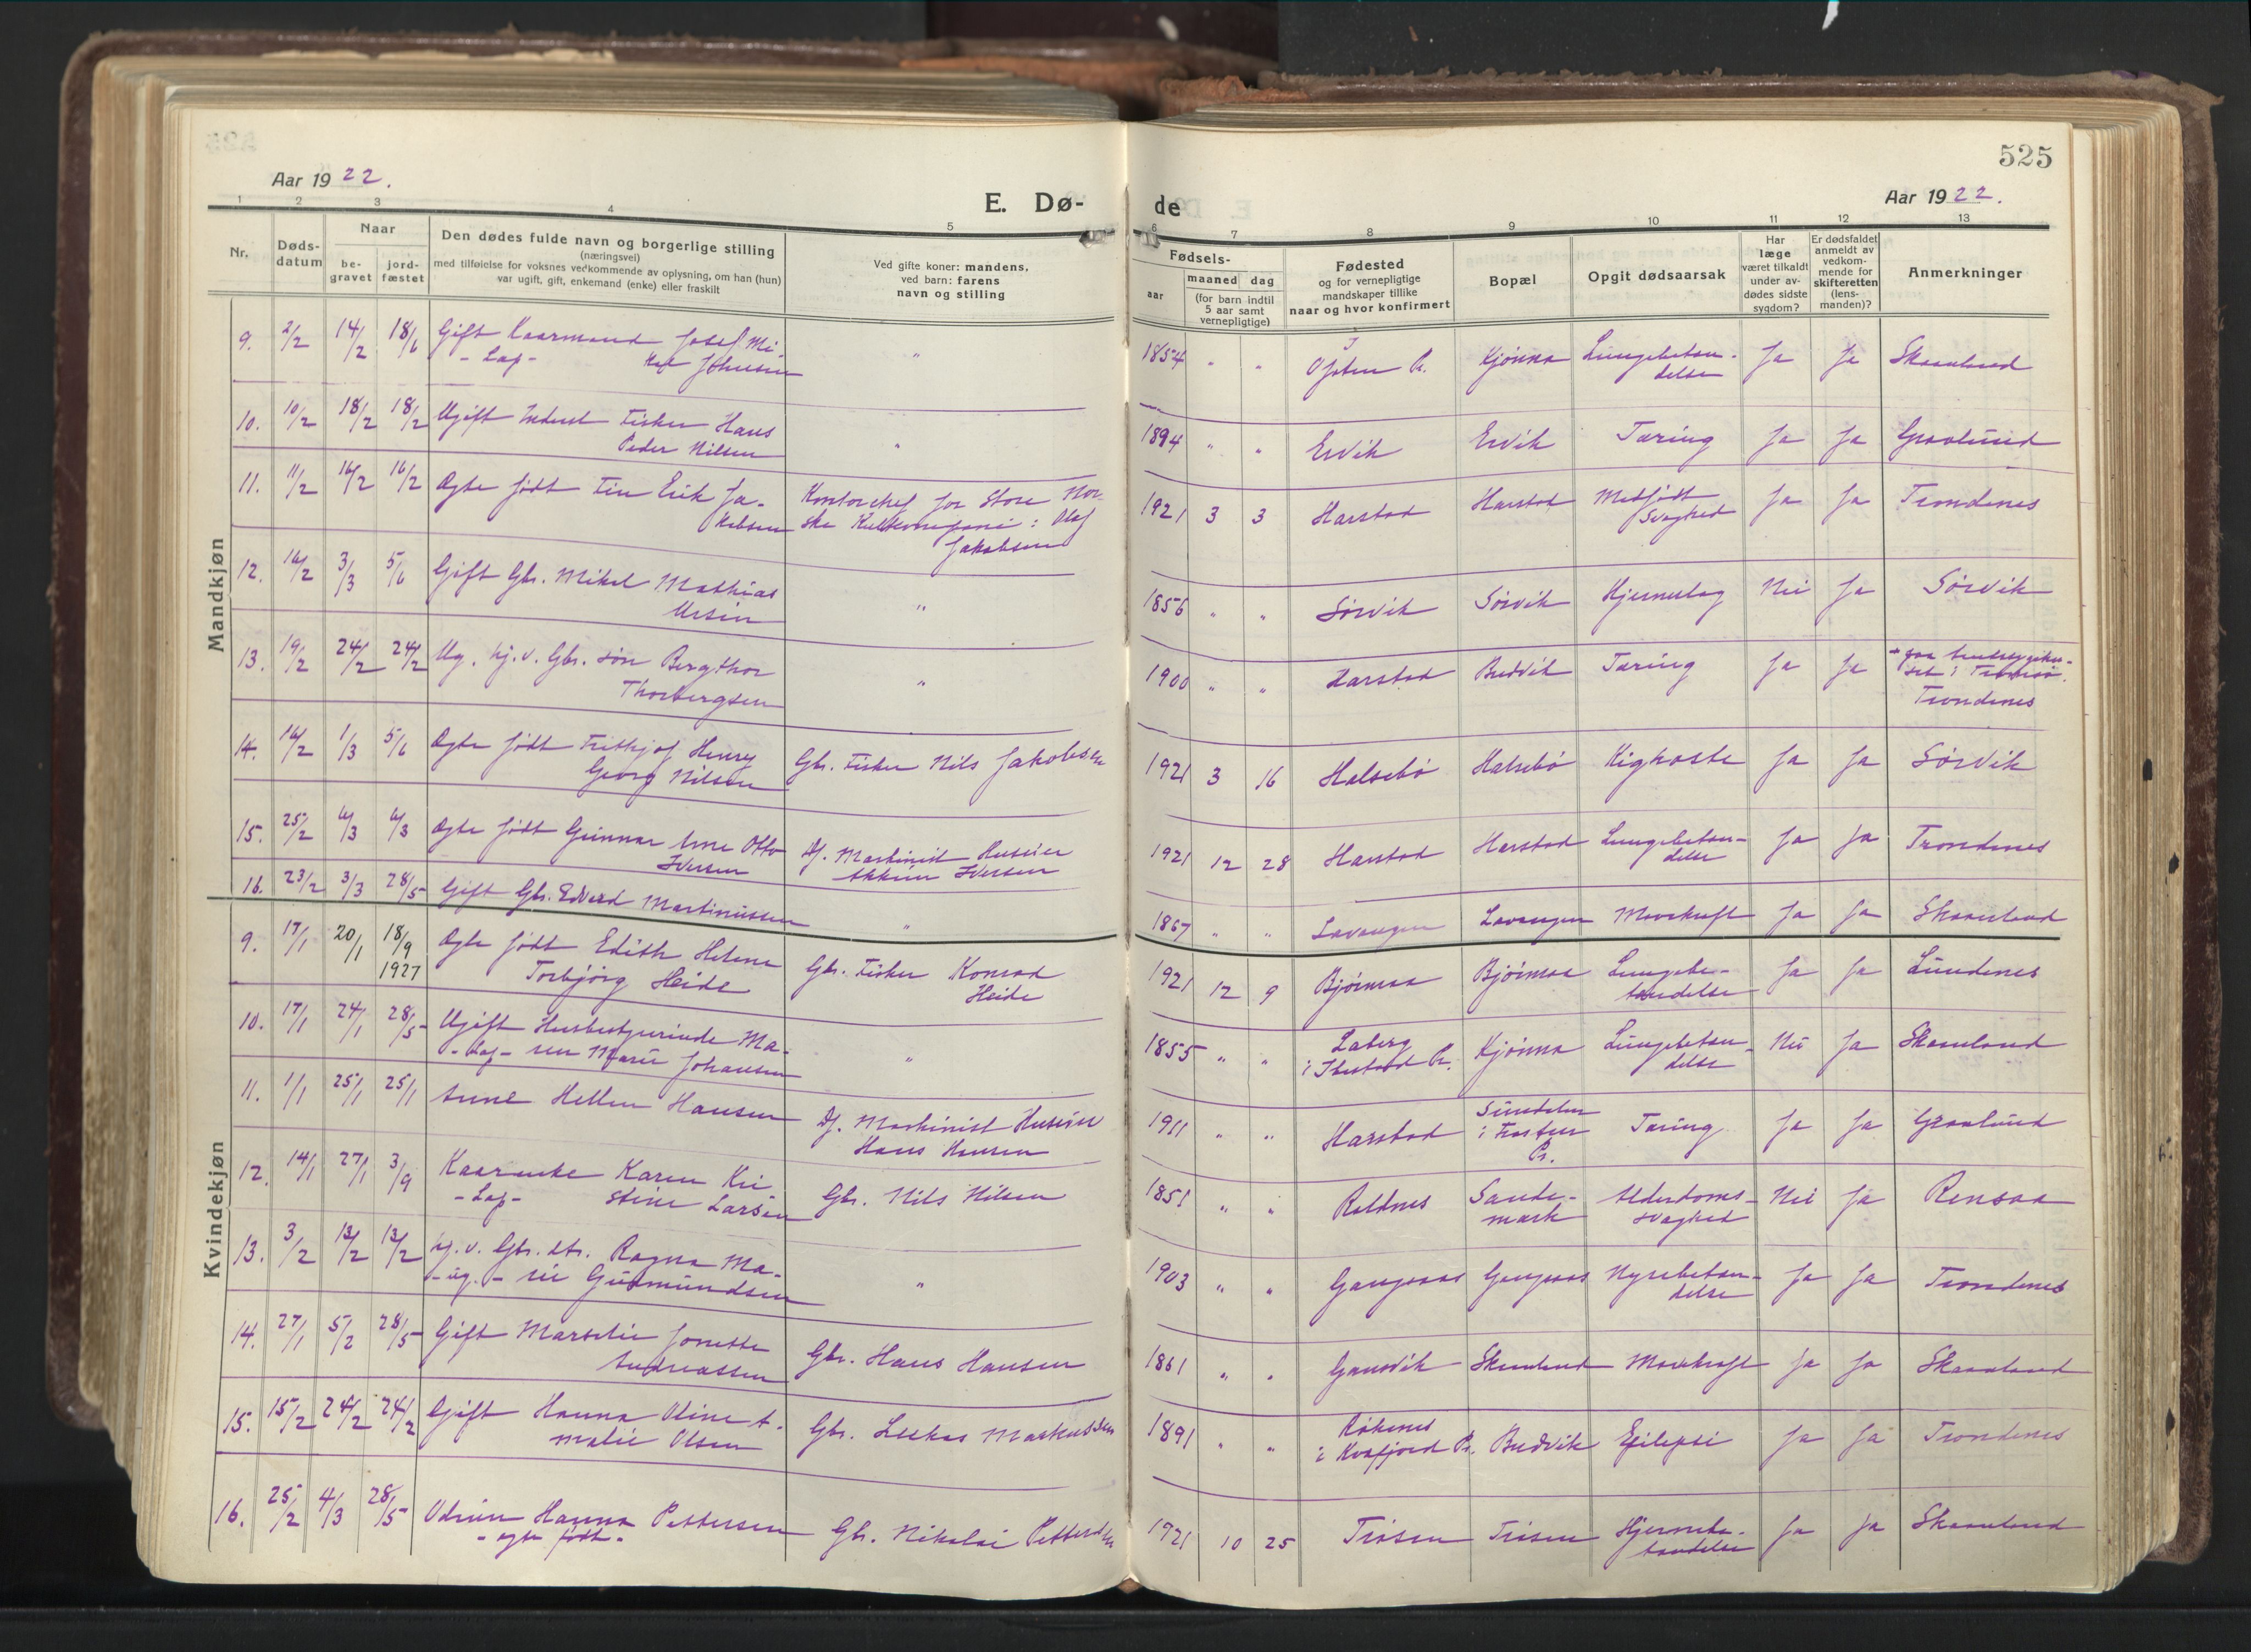 525
Aar 1922.
E. Dø-
de
Aar 1922.
1 2 3 4 5
6 7 8 9 10 11 12 13
Nr.
Døds-
datum
Naar
be-
gravet
jord-
fæstet
Den dødes fulde navn og borgerlige stilling
(næringsvei)
med tilføielse for voksnes vedkommende av oplysning, om han (hun)
var ugift, gift, enkemand (enke) eller fraskilt
Ved gifte koner: mandens,
ved barn: farens
navn og stilling
Fødsels-
aar
maaned dag
(for barn indtil
5 aar samt
vernepligtige)
Fødested
og for vernepligtige
mandskaper tillike
naar og hvor konfirmert
Bopæl
Opgit dødsaarsak
Har
læge
været tilkaldt
under av-
dødes sidste
sygdom?
Er dødsfaldet
anmeldt av
vedkom-
mende for
skifteretten
(lens-
manden)?
Anmerkninger
Mandkjøn
9. 2/2 14/2 18/6 Gift Kaarmand Josef Mi-
- Lap - kal Johnsen " 1854 " " Ofoten P. Kjønna Lungebetæn-
delse Ja Ja Skaanland
10. 10/2 18/2 18/2 Ugift Inderst Fisker Hans
Peder Nilsen " 1894 " " Ervik Ervik Tæring Ja Ja Graalund
11. 11/2 16/2 16/2 Ægte født Finn Erik Ja-
kobsen Kontorchef for Store Nor-
ske Kulkompani: Olaf
Jakobsen 1921 3 3 Harstad Harstad Medfødt
Svaghed Ja Ja Trondenes
12. 16/2 3/3 5/6 Gift Gbr. Mikal Mathias
Ursin " 1856 " " Sørvik Sørvik Hjerneslag Nei Ja Sørvik
13. 19/2 24/2 24/2 Ug. hj.v. Gbr. søn Bergthor
Thorbergsen " 1900 " " Harstad Budvik Tæring Ja Ja
set i Tromsø.
Trondenes
14. 16/2 1/3 5/6 Ægte født Frithjof Henry
Georg Nilsen Gbr. Fisker Nils Jakobsen 1921 3 16 Halsebø Halsebø Kighoste Ja Ja Sørvik
15. 25/2 6/3 6/3 Ægte født Gunnar Arne Otto
Iversen Maskinist Huseier
Iversen 1921 12 28 Harstad Harstad Lungebetæn-
delse Ja Ja Trondenes
16. 23/2 3/3 28/5 Gift Gbr. Edvard Martinussen " 1867 " " Lavangen Lavangen Mavekræft Ja Ja Skaanland
Kvindekjøn
9. 17/1 20/1 18/9 1927 Ægte født Edith Helene
Torbjørg Heide Gbr. Fisker Konrad
Heide 1921 12 9 Bjørnraa Bjørnraa Lungebe-
tændelse Ja Ja Lundenes
10. 17/1 24/1 28/5 Ugift Husbestyrerinde Ma-
- Lap - ren Marie Johansen " 1855 " " Laberg
i Ibestad P. Kjønna Lungebetæn-
delse Nei Ja Skaanland
11. 1/1 25/1 25/1 Anne Hellen Hansen Maskinist Huseier
Hans Hansen 1911 " " Harstad
i Trosten
P. Tæring Ja Ja Graalund
12. 14/1 27/1 3/9 Kaarenke Karen Kri
- Lap - stine Larsen Gbr. Nils Nilsen 1851 " " Roldnes Sande-
mark Alderdoms-
svaghed Nei Ja Rensaa
13. 3/2 13/2 13/2 hj.v. Gbr. dtr. Ragna Ma-
- ug. - rie Gudmundsen " 1903 " " Gangsaas Gangsaas Nyrebetæn-
delse Ja Ja Trondenes
14. 27/1 5/2 28/5 Gift Marselie Jonette
Andreassen Gbr. Hans Hansen 1861 " " Gausvik Skaanland Mavekræft Ja Ja Skaanland
15. 15/2 24/2 24/2 Gift Hanna Oline A-
malie Olsen Gbr. Markussen 1891 " " Røkenes
i Kvæfjord P. Budvik Epilepsi Ja Ja Trondenes
16. 25/2 4/3 28/5 Hanna Pettersen
- ægte født - Gbr. Nikolai Pettersen 1921 10 25 Trøsen Trøsen Hjernebe-
tændelse Ja Ja Skaanland